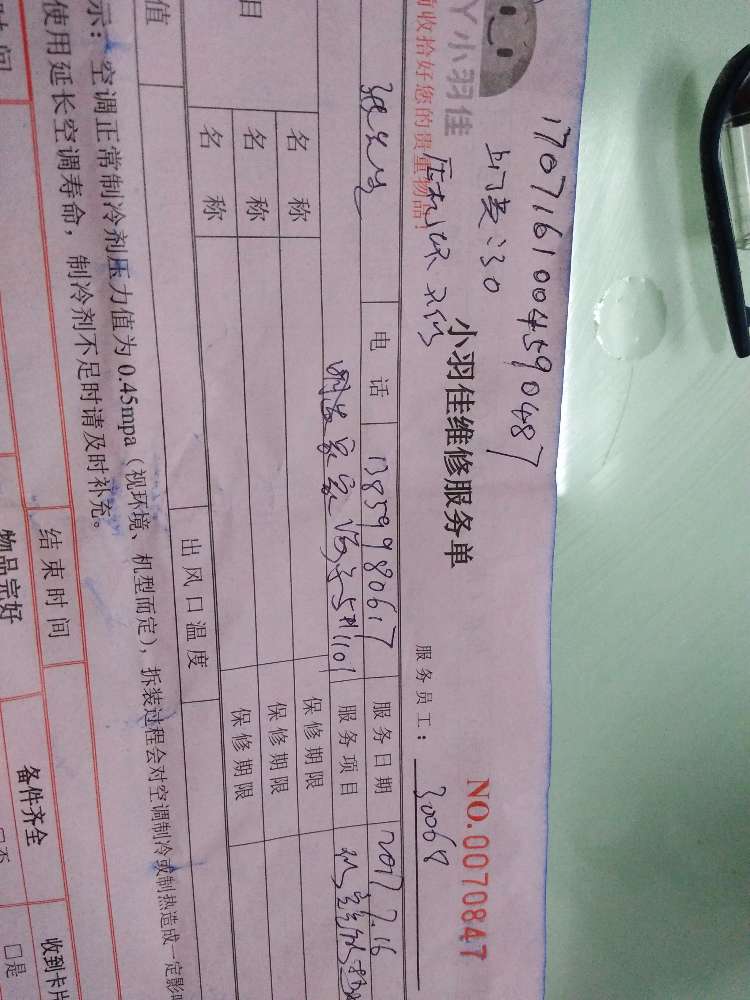 17071610045904​87
上门费:30
丫小羽佳
前收拾好您的贵重物品!
压机坏 不修
小羽佳维修服务单
NO.0070847
服务员工: 30068
张先生 电话 13859980617 服务日期 2017.7.16
5#1101 服务项目
名称 保修期限
名称 保修期限
名称 保修期限
目
值 出风口温度
示:空调正常制冷剂压力值为0.45mpa(视环境、机型而定),拆装过程会对空调制冷或制热造成一定影响
使用延长空调寿命,制冷剂不足时请及时补充。
时间 结束时间
物品完好 备件齐全 收到卡片
□否 □是